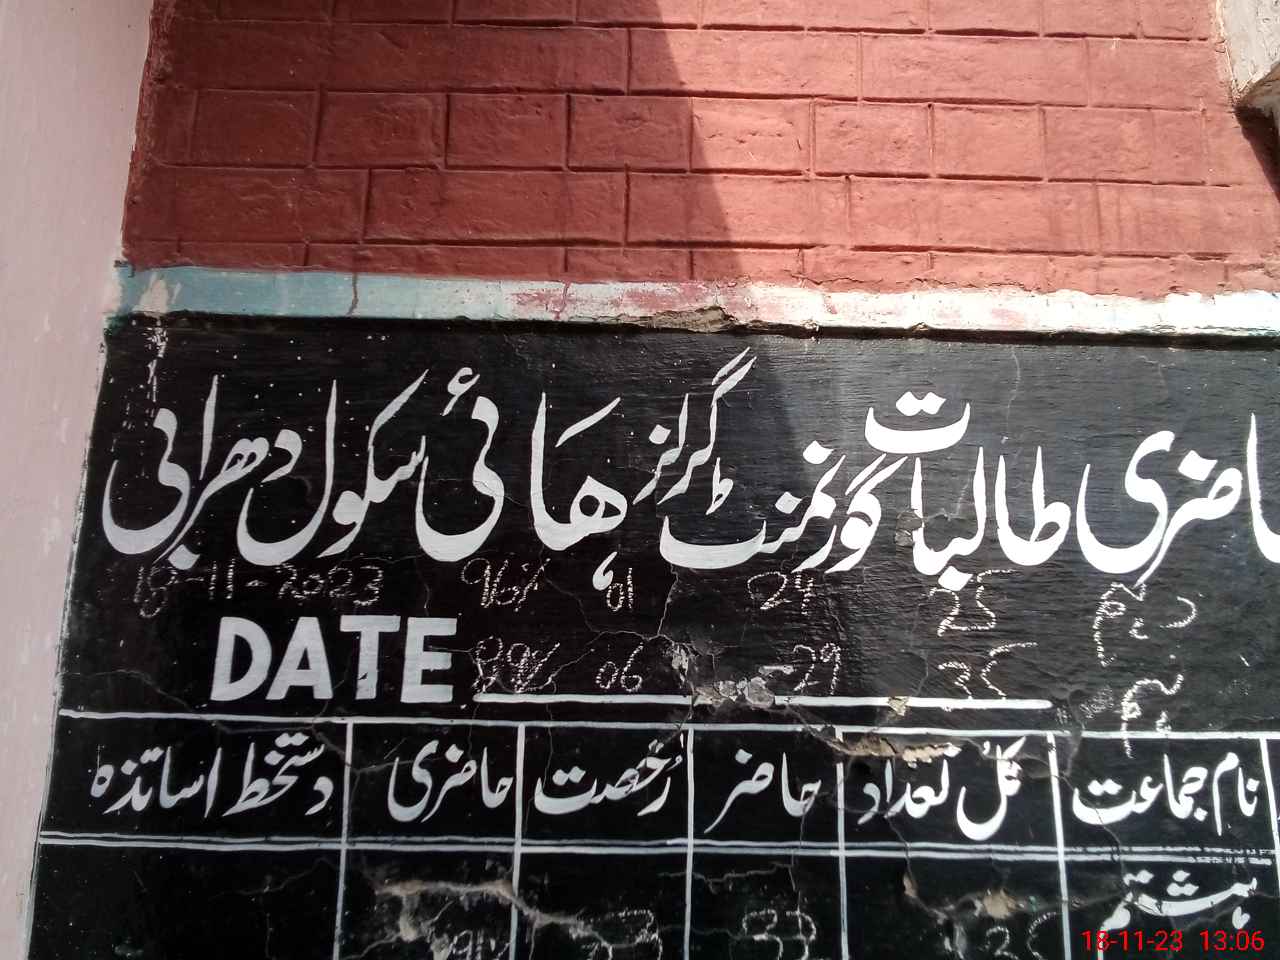 حاضری طالبات گورنمنٹ گرلز ہائی سکول دھرابی
25 24 01 96% 18-11-2023
35 29 06 DATE
نام جماعت کل تعداد حاضر رخصت حاضری دستخط اساتذہ
ہشتم 33
18-11-23 13:06